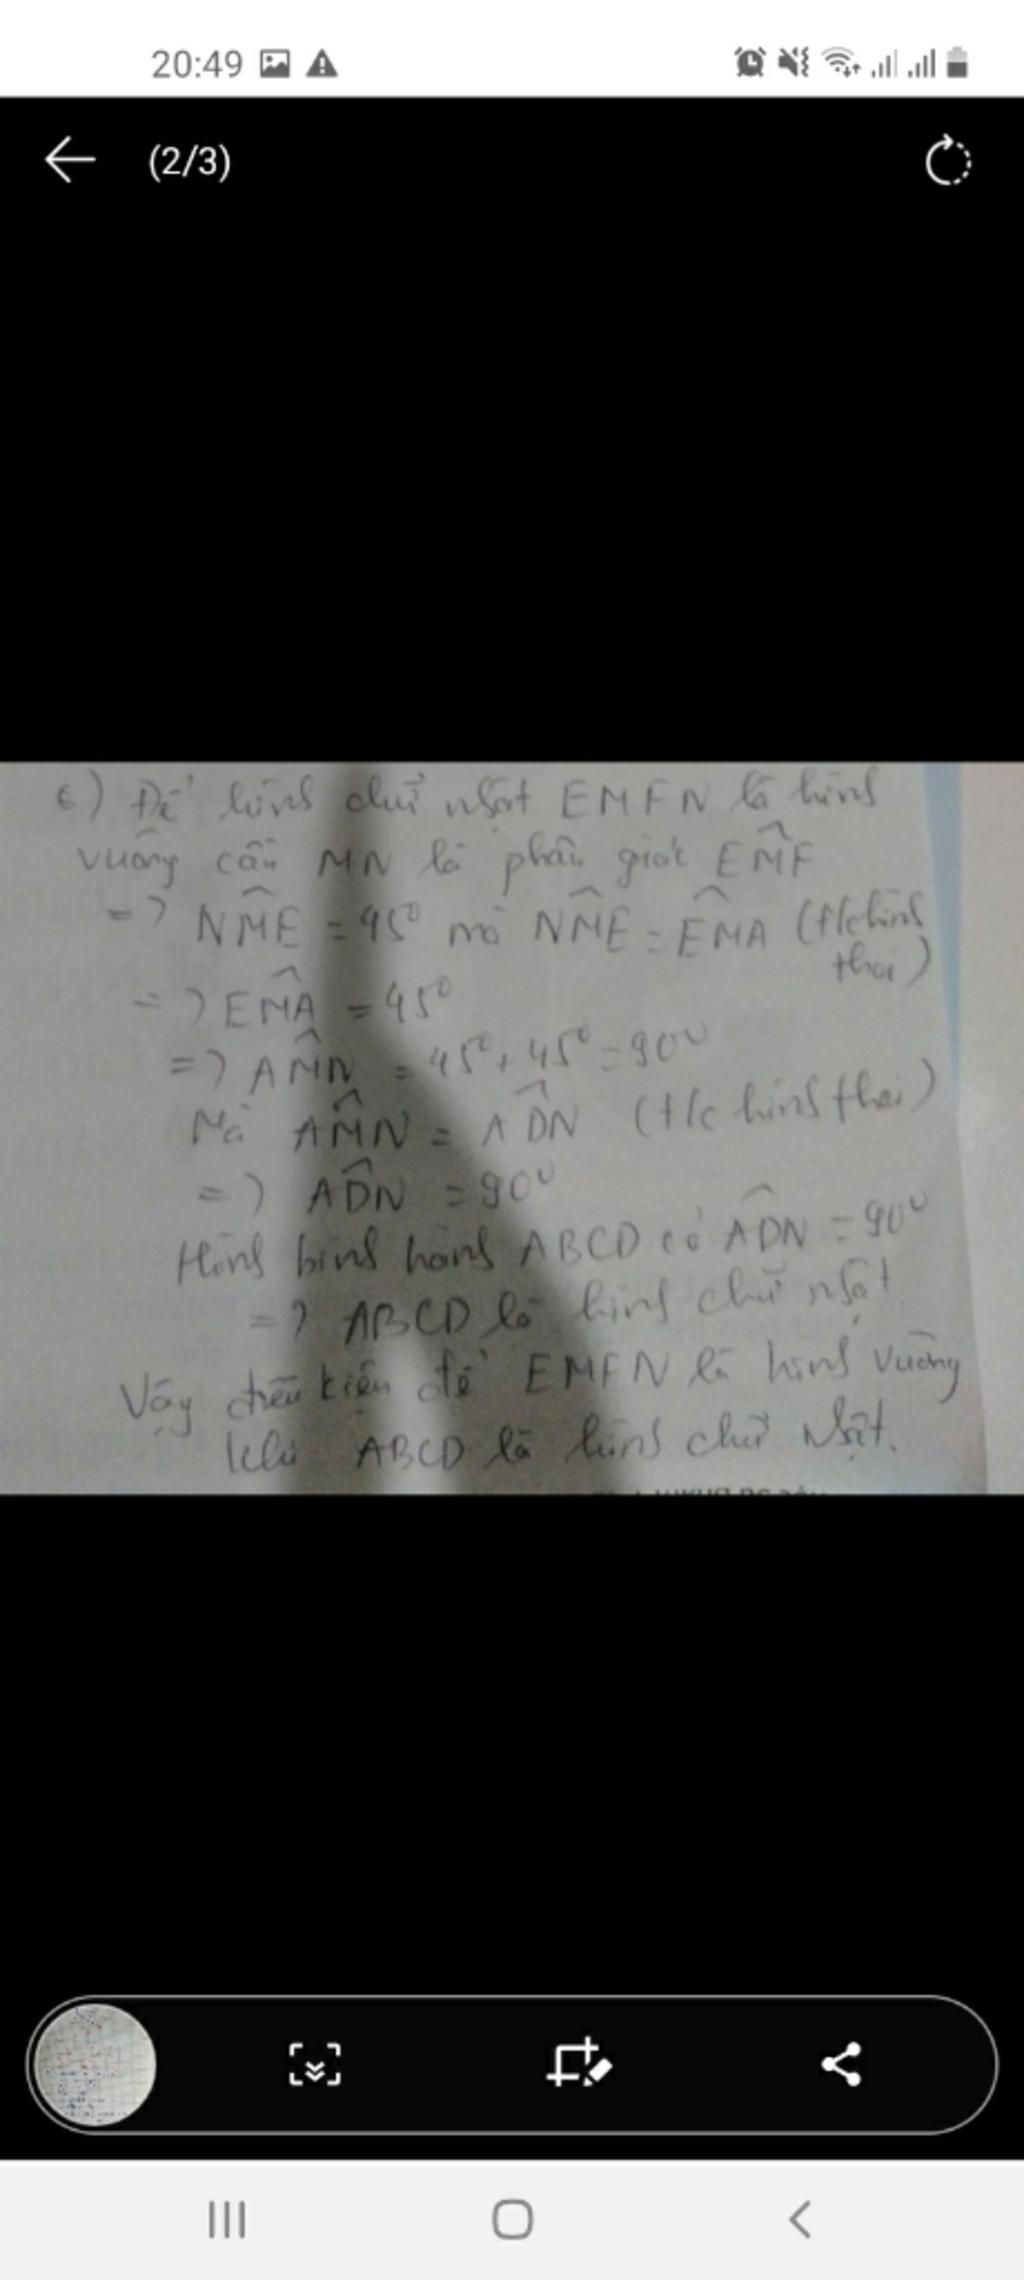 20:49
(2/3)
c) Để hình chữ nhật EMFN là hình
vuông cần MN là phân giác EMF
=> NME = 45° mà NME = EMA (t/c hình
thoi)
=> EMA = 45°
=> AMN = 45° + 45° = 90°
Mà AMN = ADN (t/c hình thoi)
=> ADN = 90°
Hình bình hành ABCD có ADN = 90°
=> ABCD là hình chữ nhật
Vậy điều kiện để EMFN là hình vuông
khi ABCD là hình chữ nhật.